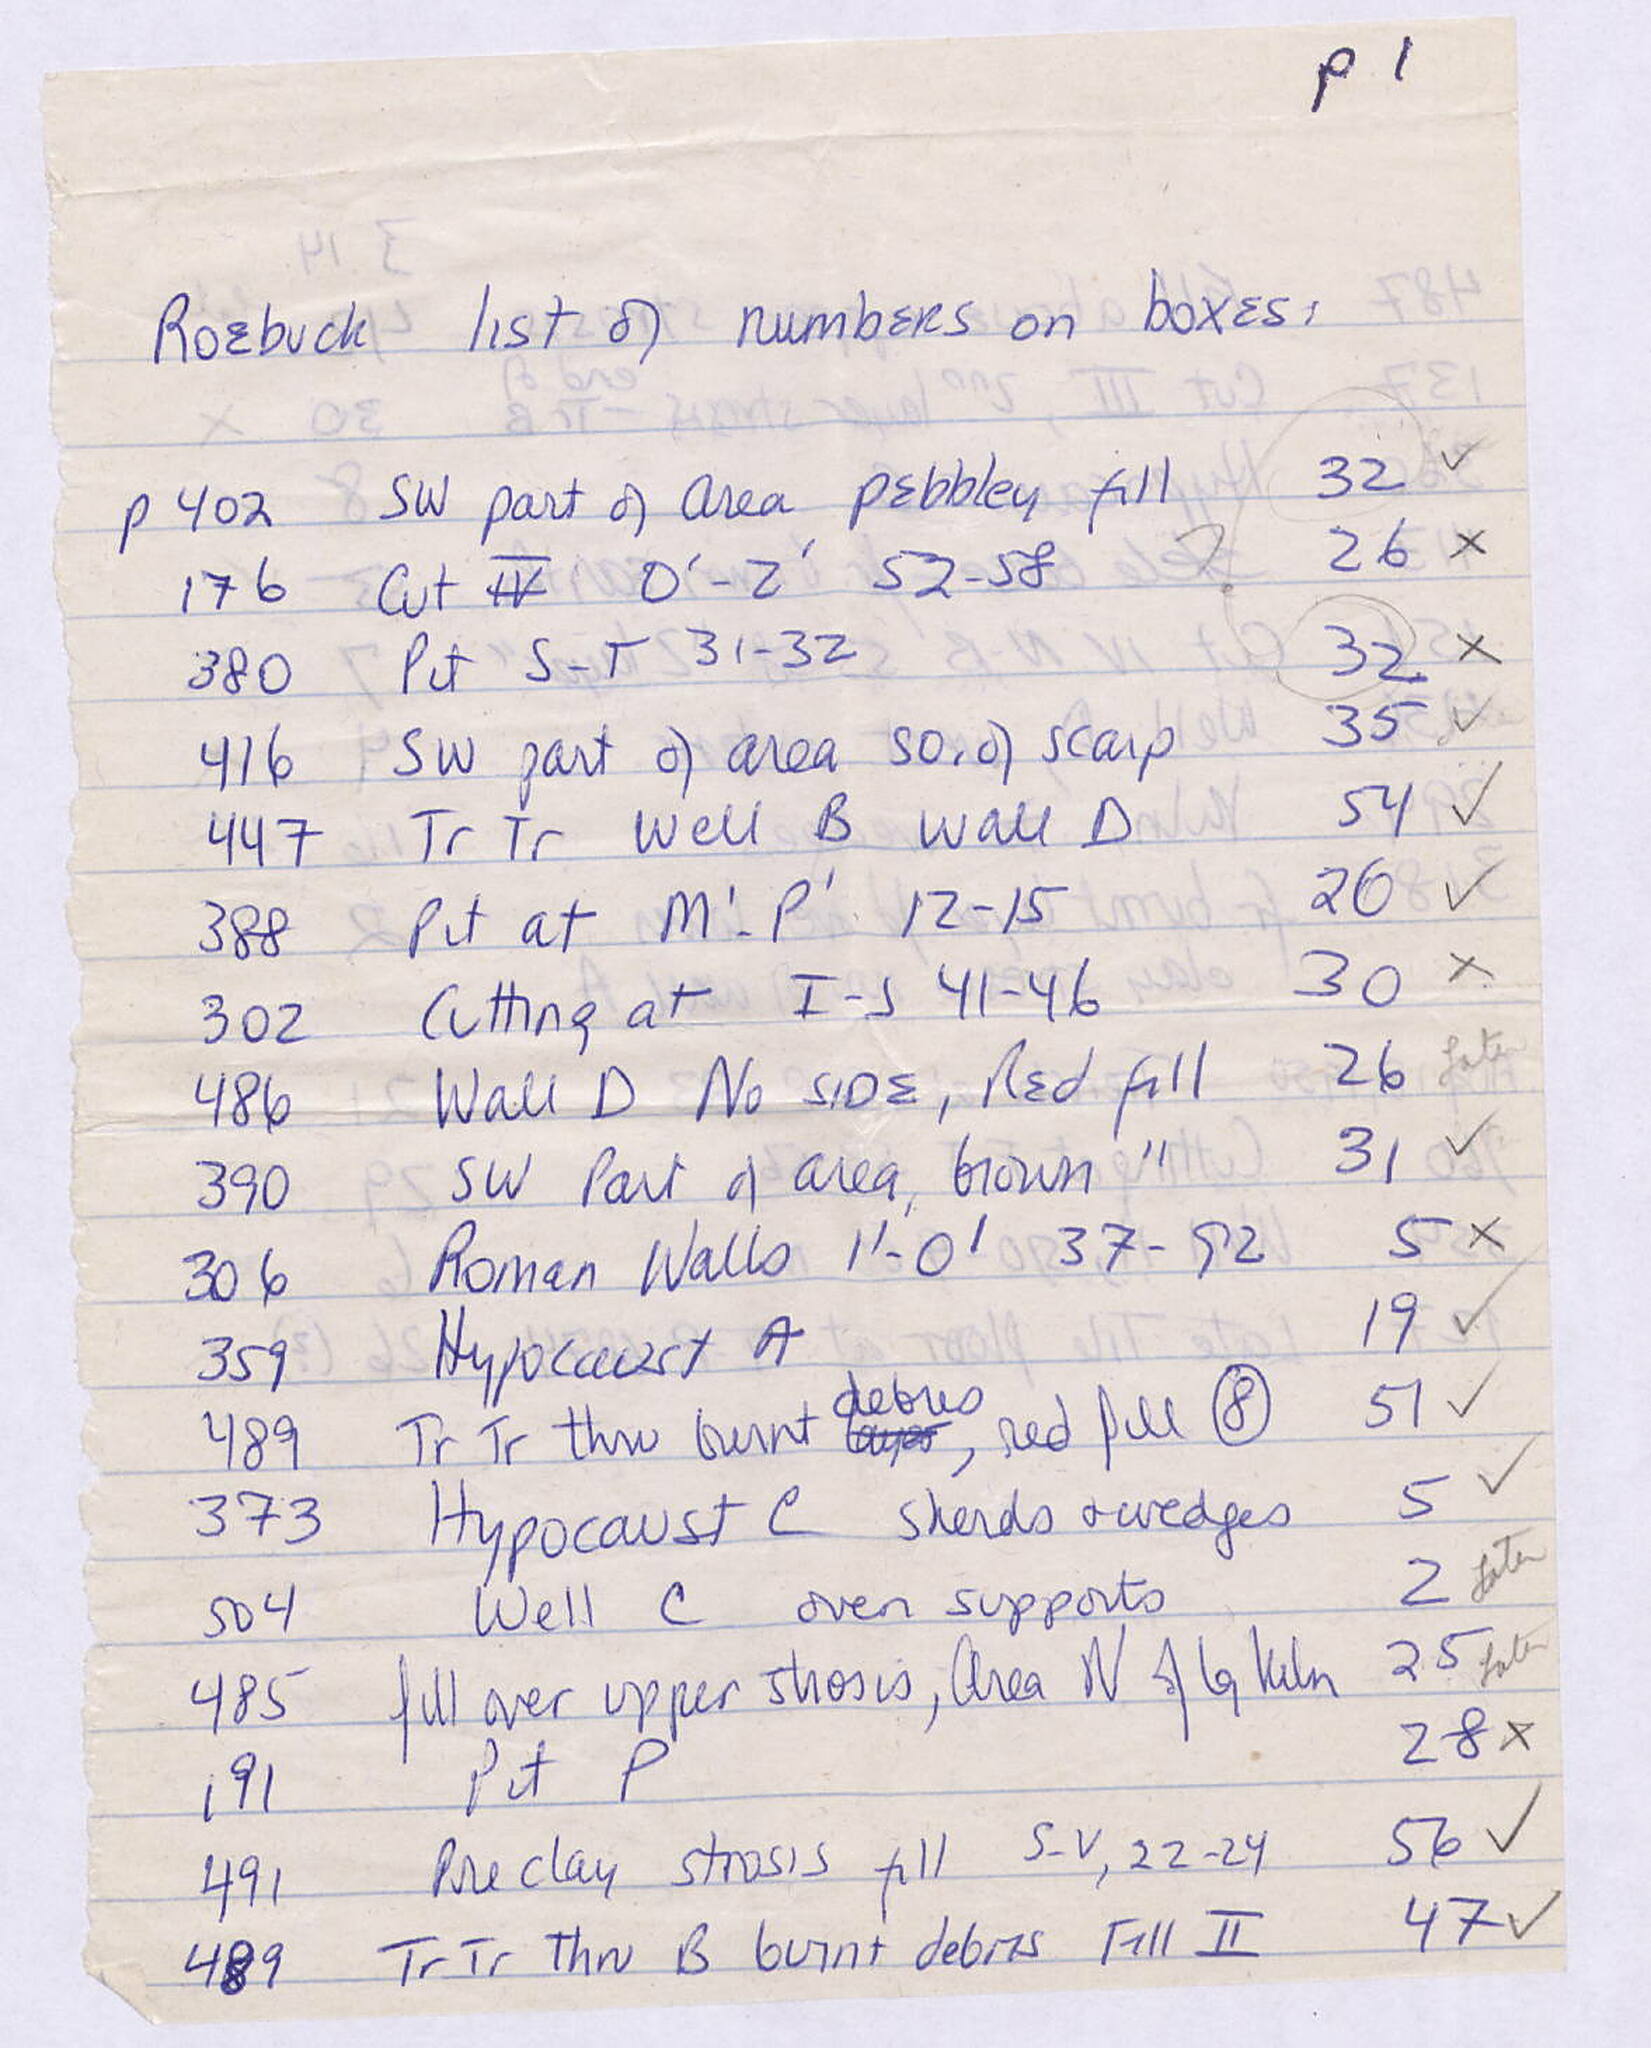 p 1
Roebuck list of numbers on boxes:
p 402 SW part of area pebbley fill 32 ✓
176 Cut IV 0'-2' 52-58 ? 26 x
380 Pit S-T 31-32 32 x
416 SW part of area so. of scarp 35 ✓
447 Tr Tr Well B Wall D 54 ✓
388 Pit at M'-P' 12-15 26 ✓
302 Cutting at I-J 41-46 30 x
486 Wall D No side, Red fill 26 later
390 SW Part of area, brown " 31 ✓
306 Roman Walls 1'-0' 37-52 5 x
359 Hypocaust A 19 ✓
489 Tr Tr thru burnt layer debris, red fill 8 51 ✓
373 Hypocaust C sherds + wedges 5 ✓
504 Well C oven supports 2 later
485 fill over upper strosis, Area N of lg kiln 25 later
191 Pit P 28 x
491 Preclay strosis fill S-V, 22-24 56 ✓
489 Tr Tr thru B burnt debris Fill II 47 ✓